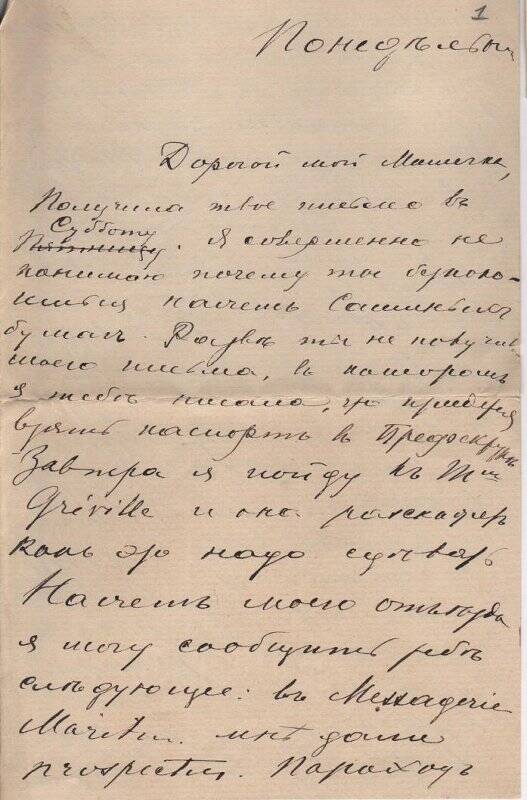 1
Понедѣльн
Дорогой мой Машечка,
Получила твое письмо въ
Субботу
Пятницу. Я совершенно не
понимаю почему ты безпоко-
ишься насчетъ Сашиныхъ
бумагъ. Развѣ ты не получилъ
моего письма, въ которомъ
я тебѣ писала, что придется
взять паспортъ въ
Завтра я пойду къ Mme
Gréville и она разскажетъ
какъ это надо сдѣлать
Насчетъ моего отъѣзда
я могу сообщить тебѣ
слѣдующее: въ Messagerie
Maritim. мнѣ дали
prospectus. Пароходъ